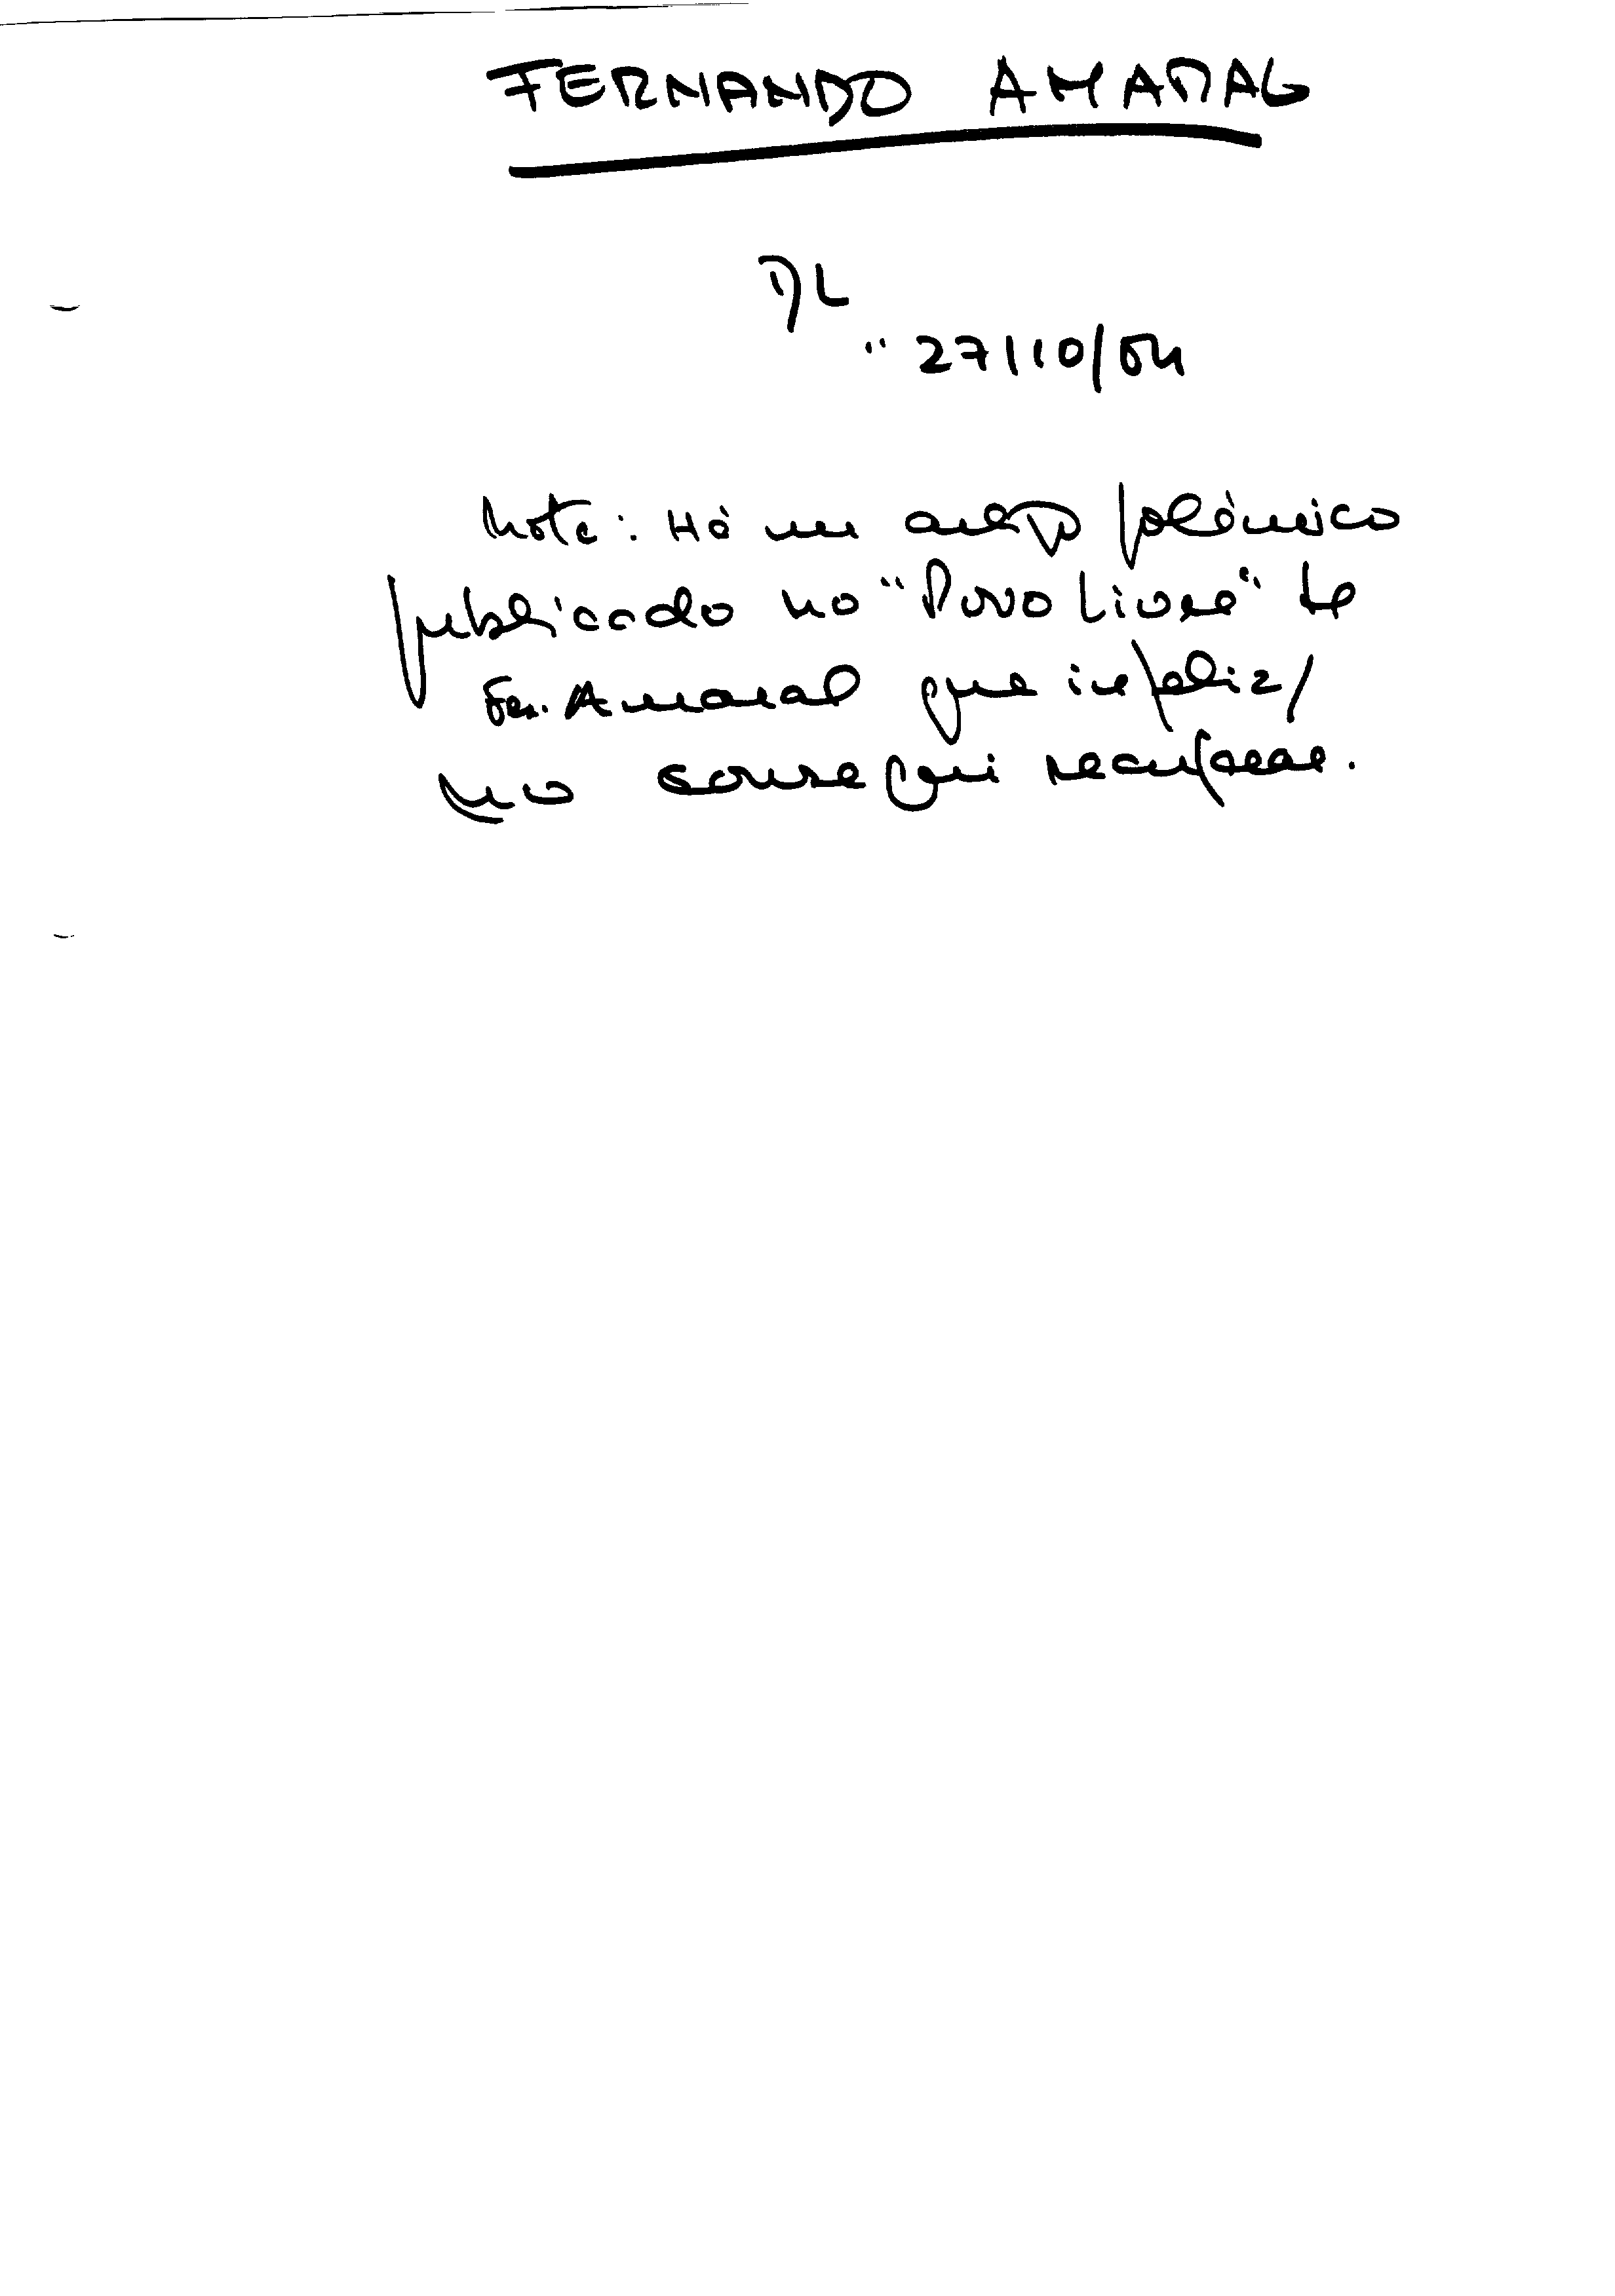 FERNANDO AMARAL
DL
" 27/10/84
Nota: Há um artigo polémico
publicado no "Povo Livre" de
Fer. Amaral que infeliz/
não consegui recuperar.